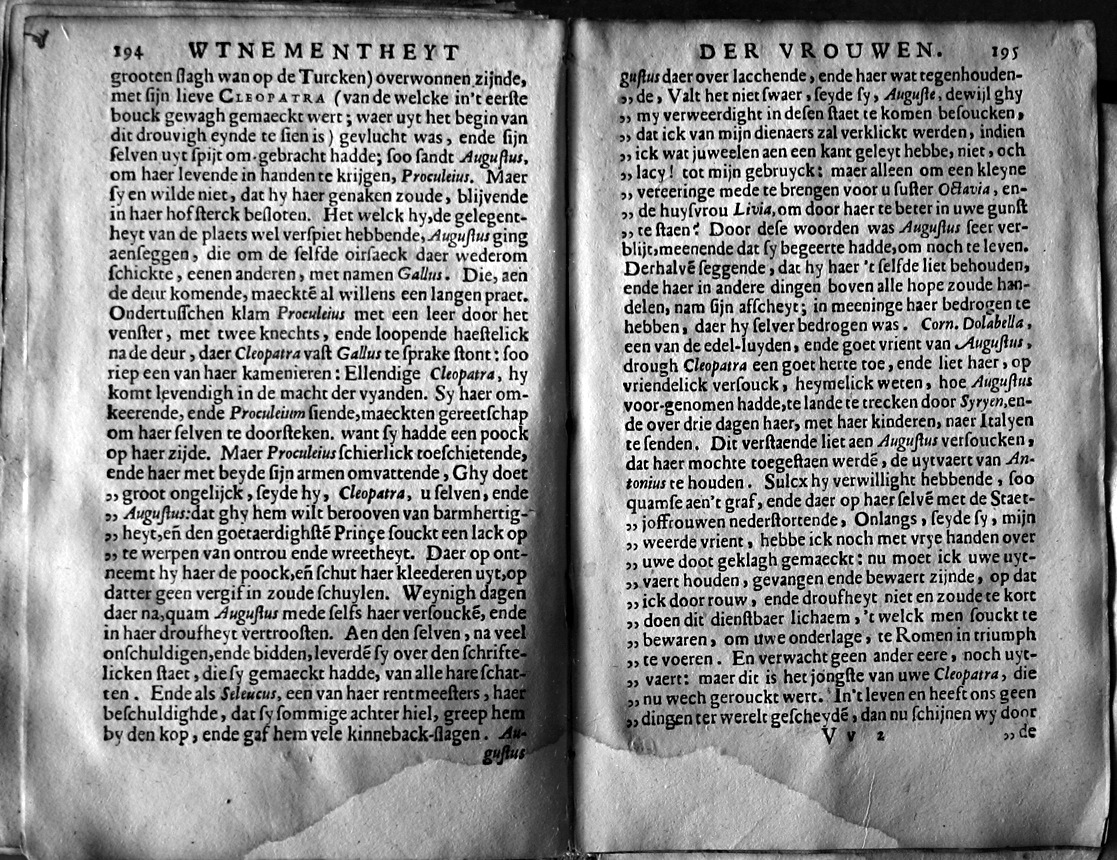 194 WTNEMENTHEYT
grooten ſlagh wan op de Turcken) overwonnen zijnde,
met ſijn lieve CLEOPATRA (van de welcke in't eerſte
bouck gewagh gemaeckt wert; waer uyt het begin van
dit drouvigh eynde te ſien is) gevlucht was, ende ſijn
ſelven uyt ſpijt om-gebracht hadde; ſoo ſandt Auguſtus,
om haer levende in handen te krijgen, Proculeius. Maer
ſy en wilde niet, dat hy haer genaken zoude, blijvende
in haer hof ſterck beſloten. Het welck hy, de gelegent-
heyt van de plaets wel verſpiet hebbende, Auguſtus ging
aenſeggen, die om de ſelfde oirſaeck daer wederom
ſchickte, eenen anderen, met namen Gallus. Die, aen
de deur komende, maecktē al willens een langen praet.
Ondertuſſchen klam Proculeius met een leer door het
venſter, met twee knechts, ende loopende haeſtelick
na de deur, daer Cleopatra vaſt Gallus te ſprake ſtont: ſoo
riep een van haer kamenieren: Ellendige Cleopatra, hy
komt levendigh in de macht der vyanden. Sy haer om-
keerende, ende Proculeium ſiende, maeckten gereetſchap
om haer ſelven te doorſteken. want ſy hadde een poock
op haer zijde. Maer Proculeius ſchierlick toeſchietende,
ende haer met beyde ſijn armen omvattende, Ghy doet
„ groot ongelijck, ſeyde hy, Cleopatra, u ſelven, ende
„ Auguſtus: dat ghy hem wilt berooven van barmhertig-
„ heyt, eñ den goetaerdighſtē Prinçe ſouckt een lack op
„ te werpen van ontrou ende wreetheyt. Daer op ont-
neemt hy haer de poock, eñ ſchut haer kleederen uyt, op
datter geen vergif in zoude ſchuylen. Weynigh dagen
daer na, quam Auguſtus mede ſelfs haer verſouckē, ende
in haer droufheyt vertrooſten. Aen den ſelven, na veel
onſchuldigen, ende bidden, leverdē ſy over den ſchrifte-
licken ſtaet, die ſy gemaeckt hadde, van alle hare ſchat-
ten. Ende als Seleucus, een van haer rentmeeſters, haer
beſchuldighde, dat ſy ſommige achter hiel, greep hem
by den kop, ende gaf hem vele kinneback-ſlagen. Au-
guſtus
DER VROUWEN. 195
guſtus daer over lacchende, ende haer wat tegenhouden-
„ de, Valt het niet ſwaer, ſeyde ſy, Auguſte, dewijl ghy
„ my verweerdight in deſen ſtaet te komen beſoucken,
„ dat ick van mijn dienaers zal verklickt werden, indien
„ ick wat juweelen aen een kant geleyt hebbe, niet, och
„ lacy! tot mijn gebruyck: maer alleen om een kleyne
„ vereeringe mede te brengen voor u ſuſter Octavia, en-
„ de huyſvrou Livia, om door haer te beter in uwe gunſt
„ te ſtaen? Door deſe woorden was Auguſtus ſeer ver-
blijt, meenende dat ſy begeerte hadde, om noch te leven.
Derhalvē ſeggende, dat hy haer 't ſelfde liet behouden,
ende haer in andere dingen boven alle hope zoude han-
delen, nam ſijn afſcheyt; in meeninge haer bedrogen te
hebben, daer hy ſelver bedrogen was. Corn. Dolabella,
een van de edel-luyden, ende goet vrient van Auguſtus,
drough Cleopatra een goet herte toe, ende liet haer, op
vriendelick verſouck, heymelick weten, hoe Auguſtus
voor-genomen hadde, te lande te trecken door Syryen, en-
de over drie dagen haer, met haer kinderen, naer Italyen
te ſenden. Dit verſtaende liet aen Auguſtus verſoucken,
dat haer mochte toegeſtaen werdē, de uytvaert van An-
tonius te houden. Sulcx hy verwillight hebbende, ſoo
quamſe aen't graf, ende daer op haer ſelvē met de Staet-
„ joffrouwen nederſtortende, Onlangs, ſeyde ſy, mijn
„ weerde vrient, hebbe ick noch met vrye handen over
„ uwe doot geklagh gemaeckt: nu moet ick uwe uyt-
„ vaert houden, gevangen ende bewaert zijnde, op dat
„ ick door rouw, ende droufheyt niet en zoude te kort
„ doen dit dienſtbaer lichaem, 't welck men ſouckt te
„ bewaren, om uwe onderlage, te Romen in triumph
„ te voeren. En verwacht geen ander eere, noch uyt-
„ vaert: maer dit is het jongſte van uwe Cleopatra, die
„ nu wech gerouckt wert. In't leven en heeft ons geen
„ dingen ter werelt geſcheydē, dan nu ſchijnen wy door
V v 2 „ de